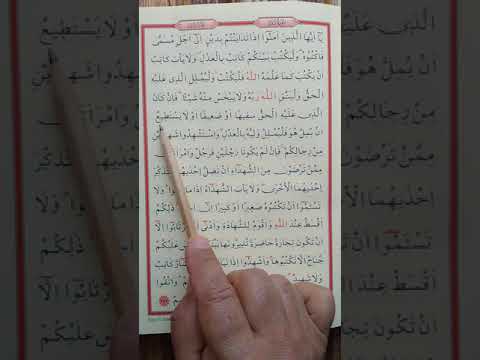 يَٓا اَيُّهَا الَّذ۪ينَ اٰمَنُٓوا اِذَا تَدَايَنْتُمْ بِدَيْنٍ اِلٰٓى اَجَلٍ مُسَمًّى
فَاكْتُبُوهُ وَلْيَكْتُبْ بَيْنَكُمْ كَاتِبٌ بِالْعَدْلِ وَلَا يَأْبَ كَاتِبٌ
اَنْ يَكْتُبَ كَمَا عَلَّمَهُ اللّٰهُ فَلْيَكْتُبْ وَلْيُمْلِلِ الَّذ۪ي عَلَيْهِ
الْحَقُّ وَلْيَتَّقِ اللّٰهَ رَبَّهُ وَلَا يَبْخَسْ مِنْهُ شَيْـًٔا فَاِنْ كَانَ
الَّذ۪ي عَلَيْهِ الْحَقُّ سَف۪يهًا اَوْ ضَع۪يفًا اَوْ لَا يَسْتَط۪يعُ
اَنْ يُمِلَّ هُوَ فَلْيُمْلِلْ وَلِيُّهُ بِالْعَدْلِ وَاسْتَشْهِدُوا شَه۪يدَيْنِ
مِنْ رِجَالِكُمْ فَاِنْ لَمْ يَكُونَا رَجُلَيْنِ فَرَجُلٌ وَامْرَاَتَانِ
مِمَّنْ تَرْضَوْنَ مِنَ الشُّهَدَٓاءِ اَنْ تَضِلَّ اِحْدٰيهُمَا فَتُذَكِّرَ
اِحْدٰيهُمَا الْاُخْرٰى وَلَا يَأْبَ الشُّهَدَٓاءُ اِذَا مَا دُعُوا وَلَا
تَسْـَٔمُٓوا اَنْ تَكْتُبُوهُ صَغ۪يرًا اَوْ كَب۪يرًا اِلٰٓى ذٰلِكُمْ
اَقْسَطُ عِنْدَ اللّٰهِ وَاَقْوَمُ لِلشَّهَادَةِ وَاَدْنٰٓى تَرْتَابُٓوا اِلَّٓا
اَنْ تَكُونَ تِجَارَةً حَاضِرَةً تُد۪يرُونَهَا بَيْنَكُمْ عَلَيْكُمْ
جُنَاحٌ اَلَّا تَكْتُبُوهَا وَاَشْهِدُٓوا اِذَا كَاتِبٌ
وَلَا شَه۪يدٌ وَاتَّقُوا